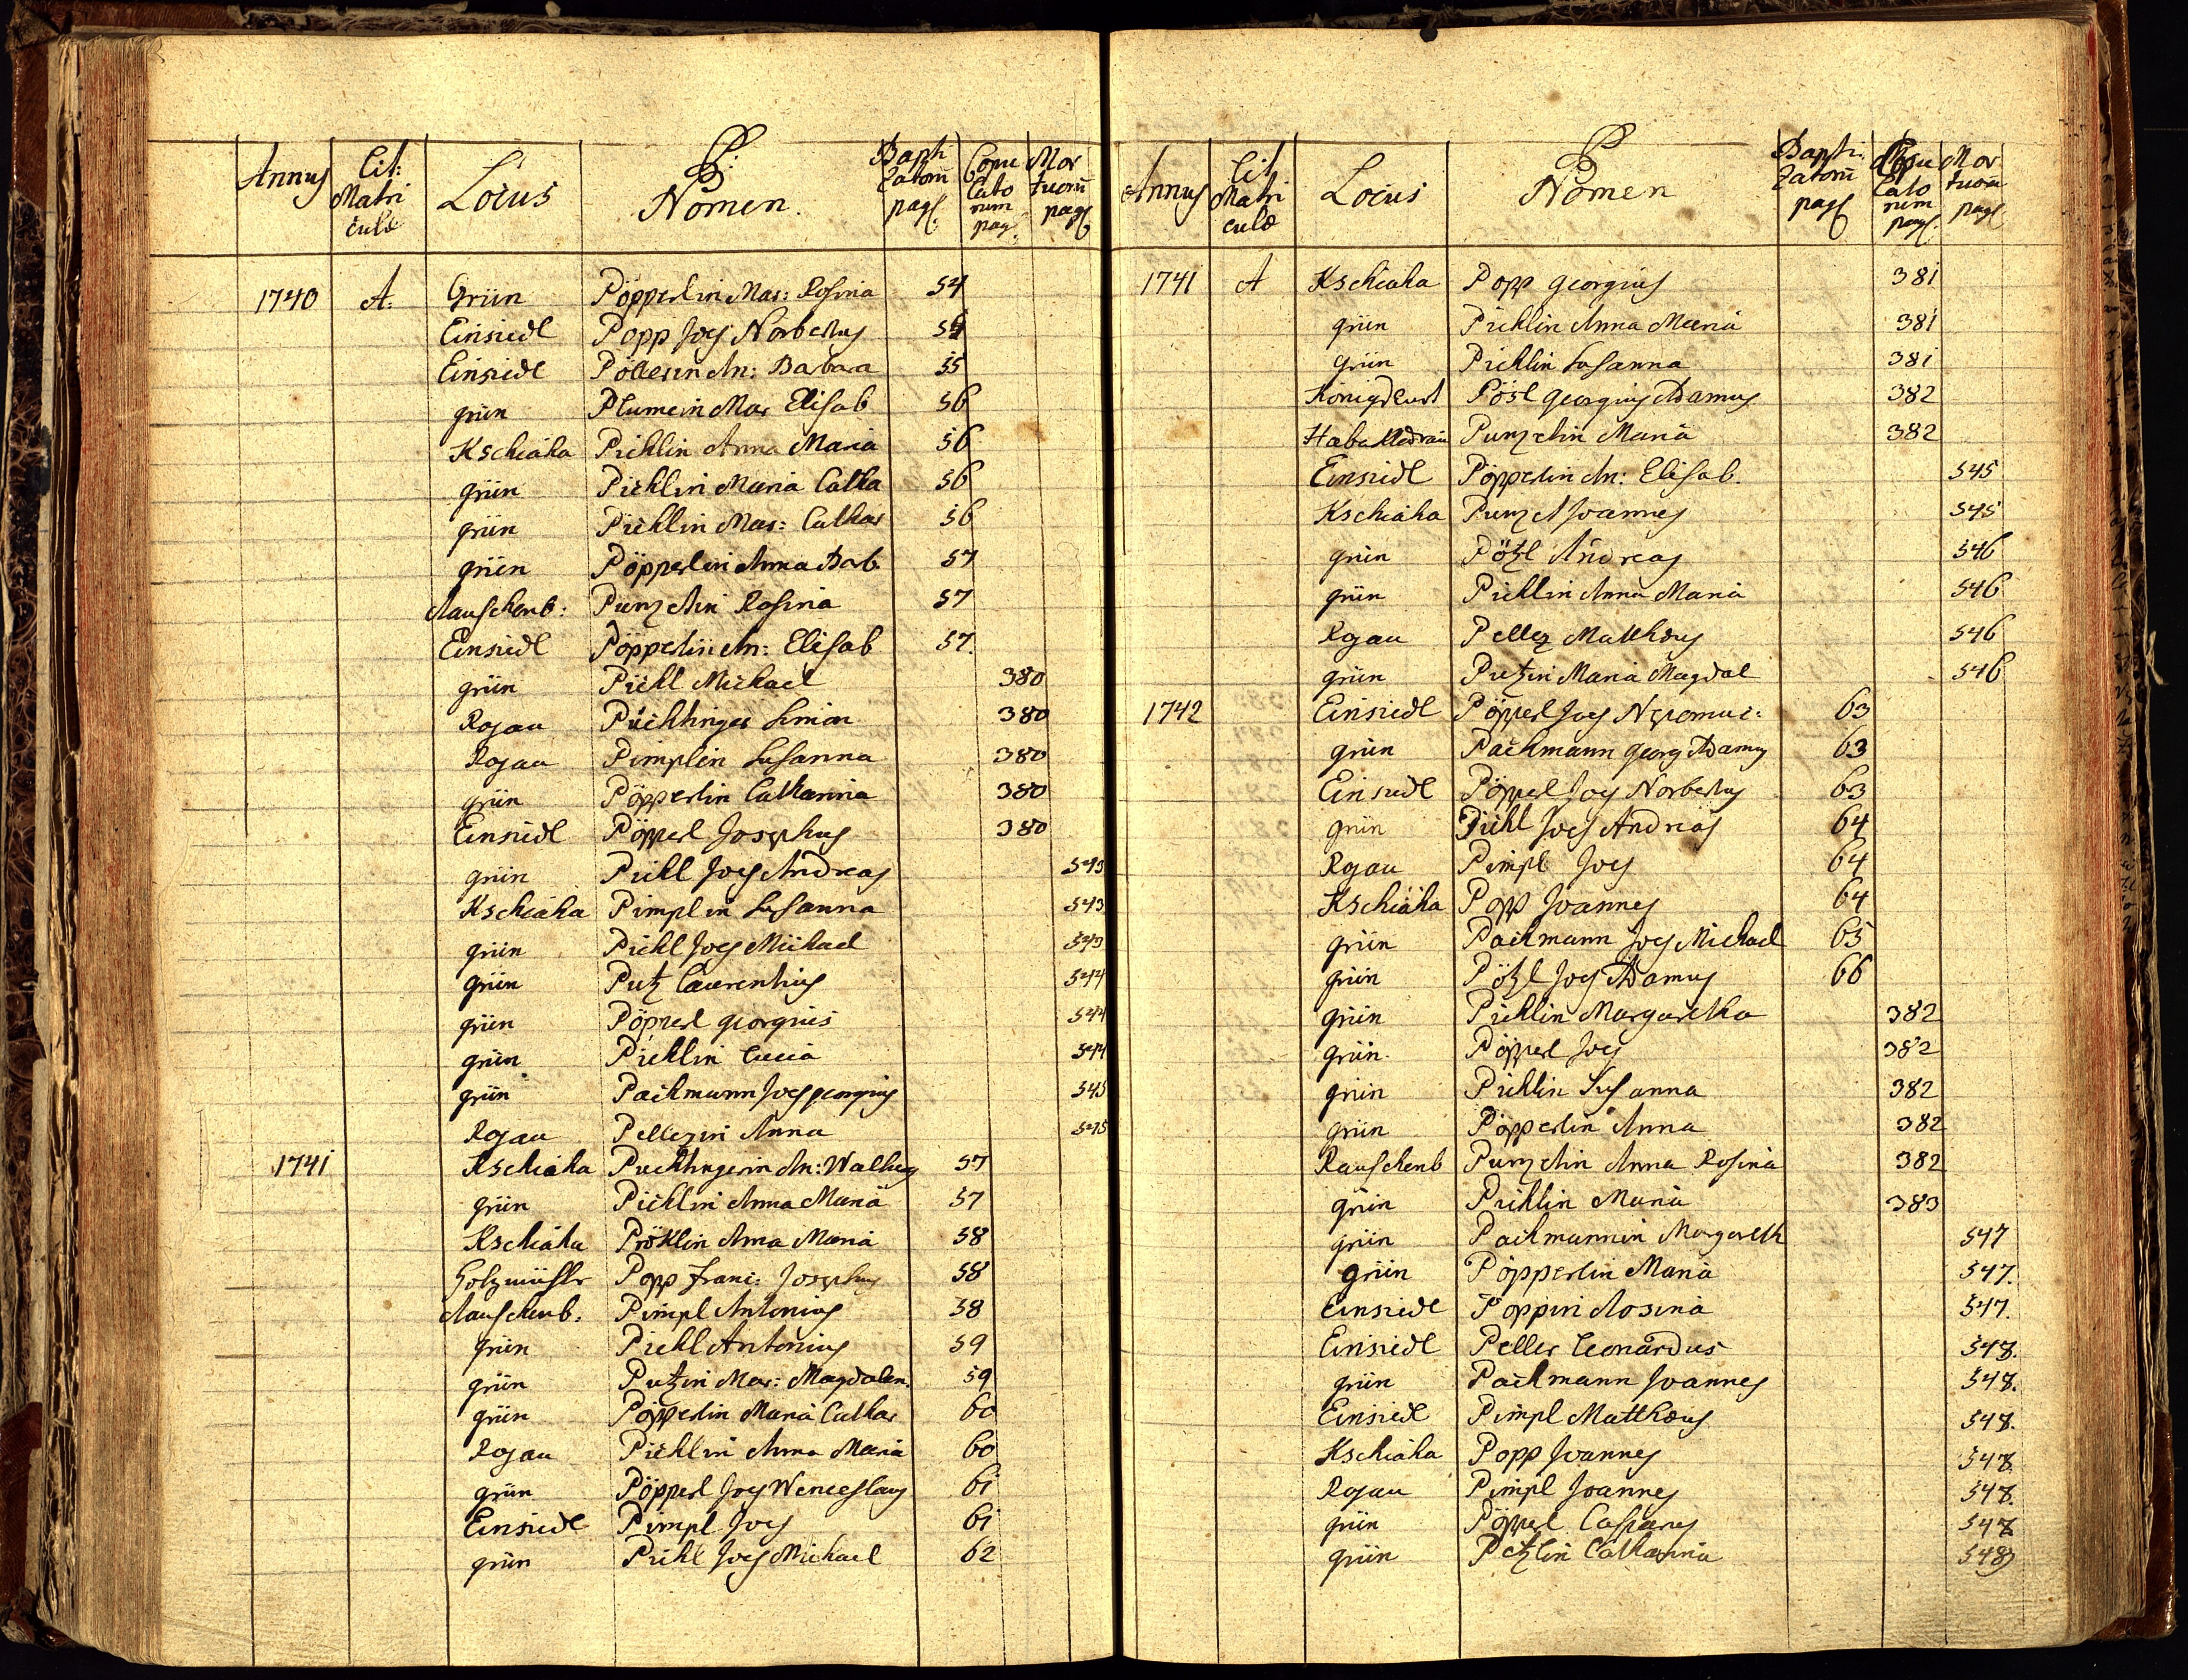 P:
Annus Lit: Matri culæ Locus Nomen. Bapti zatorũ pag: Copu lato rum pag: Mor tuorũ pag:
1740 A. Grün Pöpperlin Mar: Rosina 54
Einsiedl Popp Joēs Norbertus 54
Einsiedl Pöllerin An: Barbara 55
grün Plumein Mar Elisab 56
Kschiaha Pichlin Anna Maria 56
grün Pichlin Maria Catha 56
grün Pichlin Mar: Cathar 56
grün Pöpperlin Anna Barb. 57
Rauschenb: Punzelin Rosina 57
Einsiedl Pöpperlin An: Elisab 57.
grün Pichl Michael 380
Rojau Püchtinger Simon 380
Rojau Pimplin Susanna 380
grün Pöpperlin Catharina 380
Einsiedl Pöpperl Josephus 380
grün Pichl Joēs Andreas 543
Kschiaha Pimplin Susanna 543
grün Pichl Joēs Michael 543
grün Putz Laurentius 544
grün Pöpperl Georgius 544
grün Pichlin Lucia 544
grün Pachmann Joēs georgius 545
Rojau Pellezin Anna 545
1741 Kschiaha Puchtingerin An: Walburg 57
grün Pichlin Anna Maria 57
Kschiaha Pröklin Anna Maria 58
Holzmühlr Popp Franc: Josephus 58
Rauschenb. Pimpl Antonius 58
grün Pichl Antonius 59
grün Putzin Mar: Magdalen. 59
grün Pöpperlin Maria Cathar 60
Rojau Pichlin Anna Maria 60
grün Pöpperl Joēs Wenceslaus 61
Einsiedl Pimpl Joēs 61
grün Pichl Joēs Michael 62
P
Annus Lit Matri culæ Locus Nomen Bapti zatorũ pag: Copu lato rum pag: Mor tuorũ pag:
1741 A Kschiaha Popp Georgius 381
grün Pichlin Anna Maria 381
grün Pichlin Susanna 381
Pösl Georgius Adamus 382
Punzelin Maria 382
Einsiedl Pöpperlin An: Elisab. 545
Kschiaha Punzel Joannes 545
grün Pötzl Andreas 546
grün Pichlin Anna Maria 546
Rojau Pellez Matthæus 546
grün Putzin Maria Magdal 546
1742 Einsiedl Pöpperl Joēs Nepomuc: 63
grün Pachmann Georg Adamus 63
Einsiedl Pöpperl Joēs Norbertus 63
grün Pichl Joēs Andreas 64
Rojau Pimpl Joēs 64
Kschiaha Popp Joannes 64
grün Pachmann Joēs Michael 65
grün Pötzl Joēs Adamus 66
grün Pichlin Margaretha 382
grün. Pöpperl Joēs 382
grün Pichlin Susanna 382
grün Pöpperlin Anna 382
Rauschenb Punzelin Anna Rosina 382
grün Pichlin Maria 383
grün Pachmannin Margareth 547
grün Pöpperlin Maria 547.
Einsiedl Poppin Rosina 547.
Einsiedl Peller Leonardus 548.
grün Pachmann Joannes 548.
Einsiedl Pimpl Matthæus 548.
Kschiaha Popp Joannes 548
Rojau Pimpl Joannes 548.
grün Pöpperl Casparus 548
grün Petzlin Catharina 548